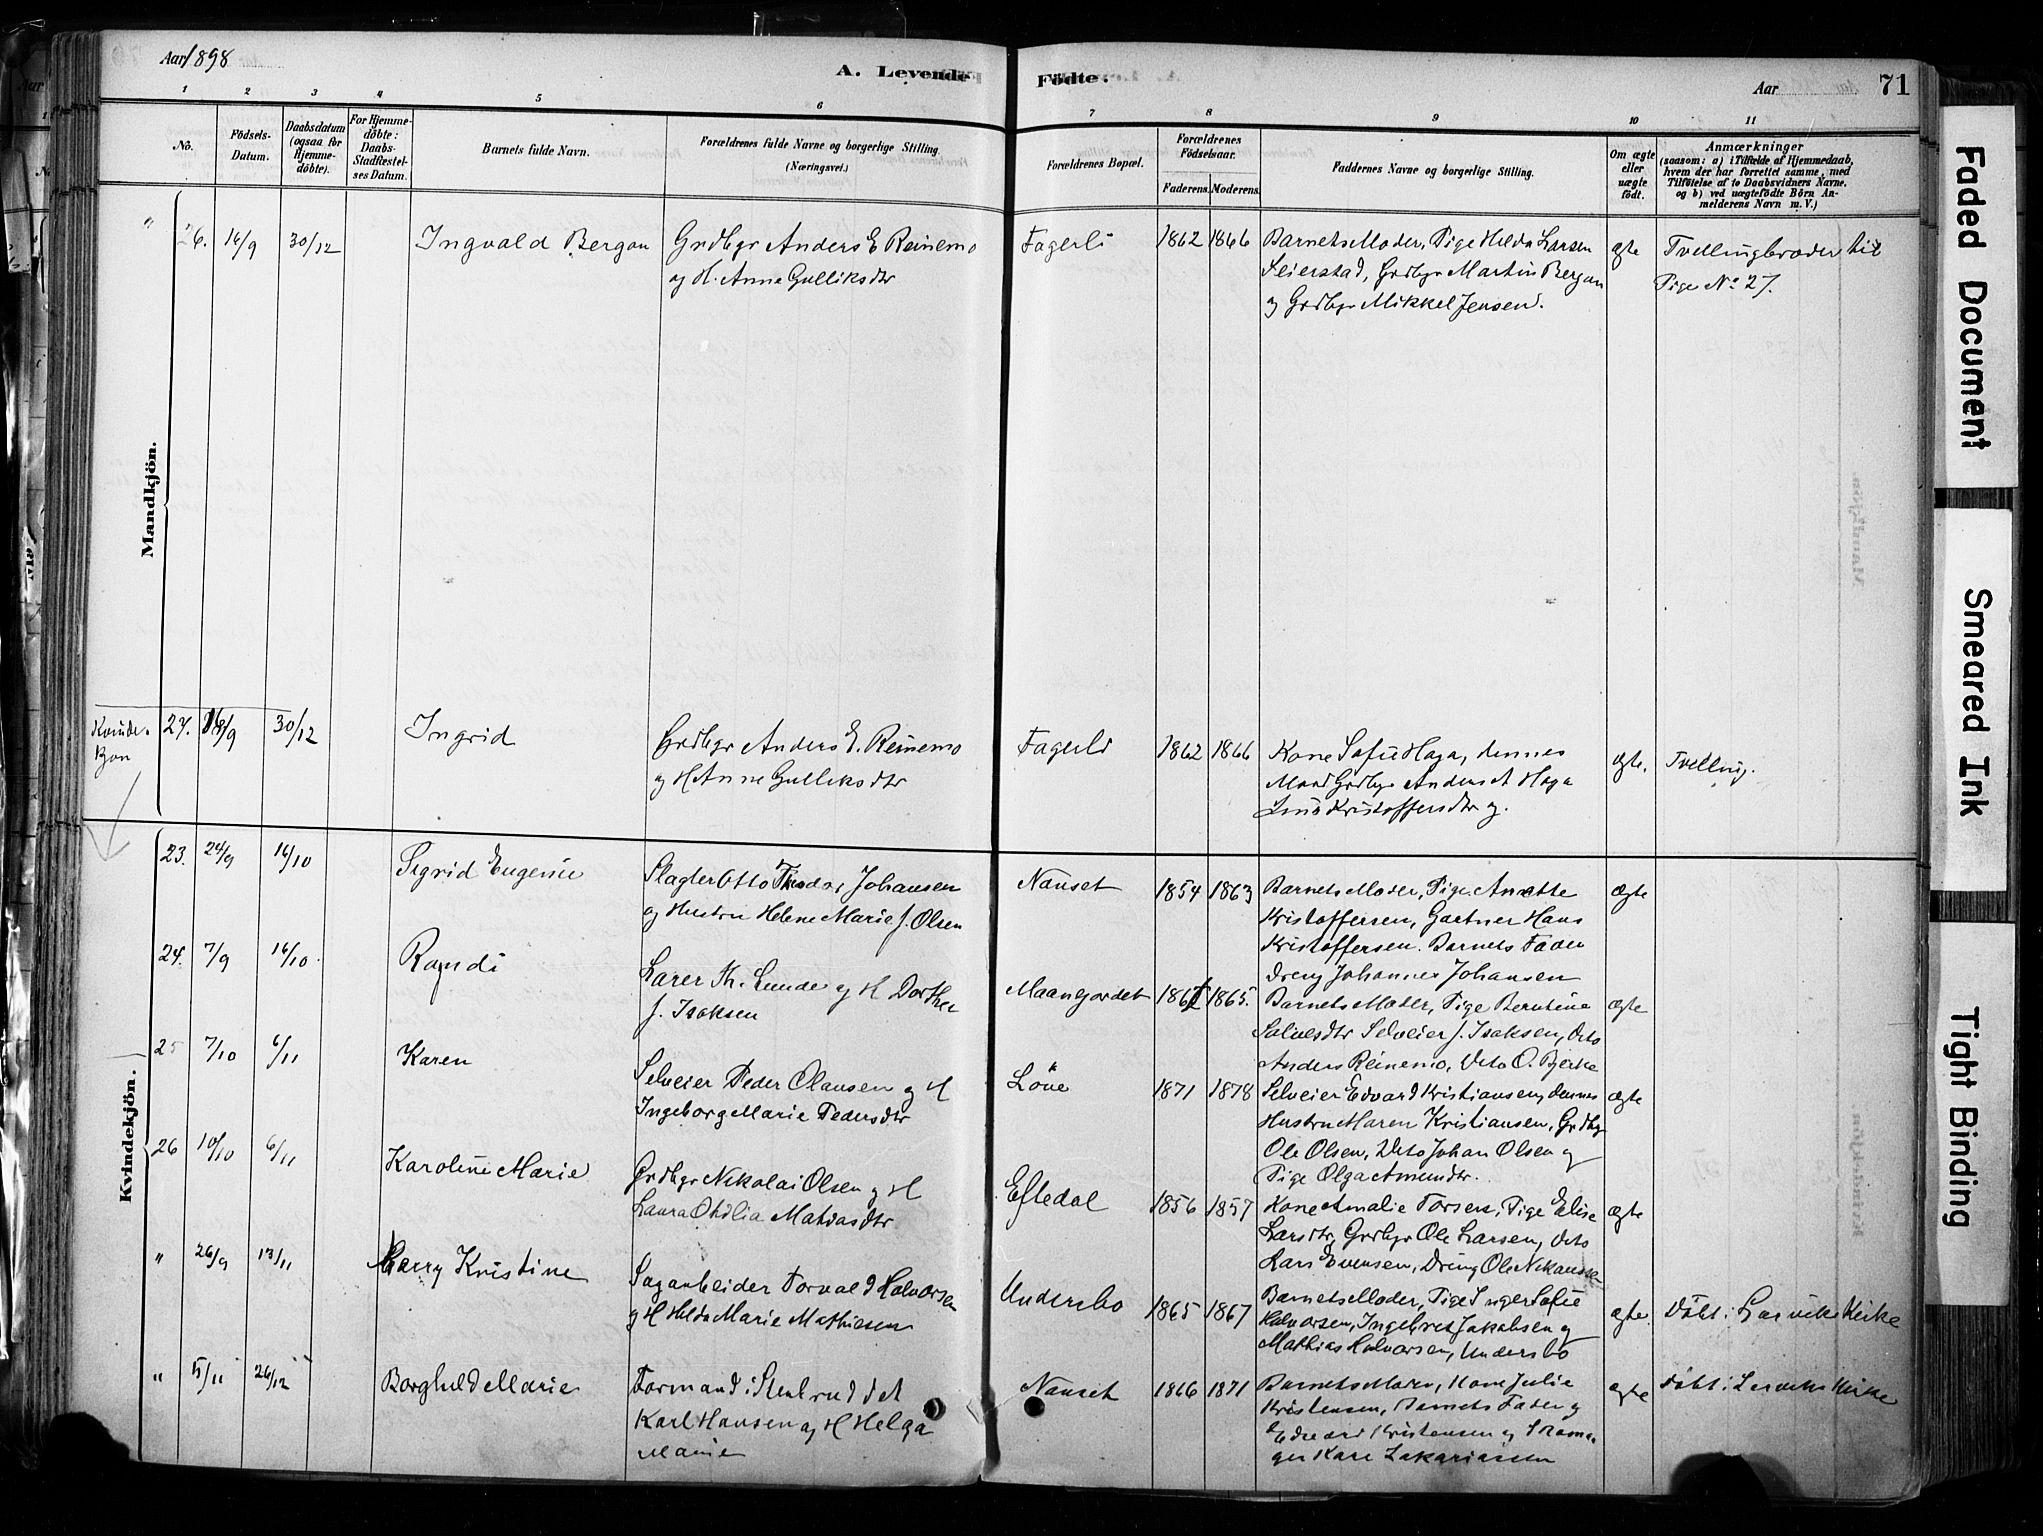 Aar 1898
A. Levende
Födte.
Aar
71
1 2 3 4 5 6 7 8 9 10 11
No.
Födsels-Datum.
Daabsdatum (ogsaa for Hjemme-döbte).
For Hjemme-döbte: Daabs-Stadfæstel-ses Datum.
Barnets fulde Navn.
Forældrenes fulde Navne og borgerlige Stilling.
(Næringsvei.)
Forældrenes Bopæl.
Forældrenes Födselsaar.
Faderens. Moderens.
Faddernes Navne og borgerlige Stilling.
Om ægte eller uægte födt.
Anmærkninger
(saasom: a) i Tilfælde af Hjemmedaab,
hvem der har forrettet samme, med
Tilföielse af to Daabsvidners Navne.
og b) ved uægtefödte Börn An-
melderens Navn m. V.)
Mandkjön.
" 26. 16/9 30/12 Ingvald Bergan
Grdbgr Anders E Reinemo
og H. Anne Gulliksdtr
Fagerli 1862 1866
Barnets Moder, Pige Hilda Larsen
Seierstad, Grdbgr Martin Bergan
og Grdbgr Mikkel Jensen.
ægte
Tvellingbroder til
Pige No 27.
Kvinde-
27. 16/9 30/12 Ingrid
Grdbgr Anders E. Reinemo
og H Anne Gulliksdtr
Fagerli 1862 1866
Kone Sofie Haga, dennes
Mand Grdbgr Anders A Haga
Kristoffersdtr og.
ægte. Tvelling.
Kvindekjön.
23. 24/9 16/10 Sigrid Eugenie
Slagter Otto Theodor Johansen
og Hustru Helene Marie J. Olsen
Nanset 1854 1863
Barnets Moder, Pige Anette
Kristoffersen, Gartner Hans
Kristoffersen. Barnets Fader
Dreng Johannes Johansen
ægte
24. 7/9 16/10. Randi
Lærer Th. Lunde og H Dorthea
J. Isaksen
Maangordet 1865.
Barnets Moder, Pige Berntine
Salvesdtr Selveier J. Isaksen, Dito
Anders Reinemo, Dito O. Bjerke
ægte
25 7/10 6/11 Karen
Selveier Peder Olausen og H
Ingeborg Marie Pedersdtr
Löve 1871 1878
Selveier Edvard Kristiansen, dennes
Hustru Maren Kristiansen, Grdbg
Ole Olsen, Dito Johan Olsen og
Pige Olga Amundtr.
ægte
26 10/10 6/11 Karoline Marie
Grdbgr Nikolai Olsen og H
Laura Otidlia Matiasdtr
Eftedal 1856 1857
Kone Amalie Torsen, Pige Elise
Larsdtr, Grdbgr Ole Larsen, Dito
Lars Evensen, Dreng Ole
ægte
" 26/9 13/11 Kristine
Sagarbeider Torvald Halvorsen
og H Hilda Marie Mathisen
Undersbo 1865 1867
Barnets Moder, Pige Inger Sofie
Halvorsen, Ingebret Jakobsen og
Mathias Halvorsen, Undersbo
ægte. Döbt i Larviks Kirke
" 5/11 26/12 Borghild Marie
Formand i Stenbruddet
Karl Hansen og H Helga
Marie
Nanset 1866 1871
Barnets Moder, Kone Julie
Kristensen, Barnets Fader og
Edvard Kristensen og Skoma-
ger Kare Zakariasen
ægte Döbt i Larviks Kirke
Faded Document
Smeared Ink
Tight Binding